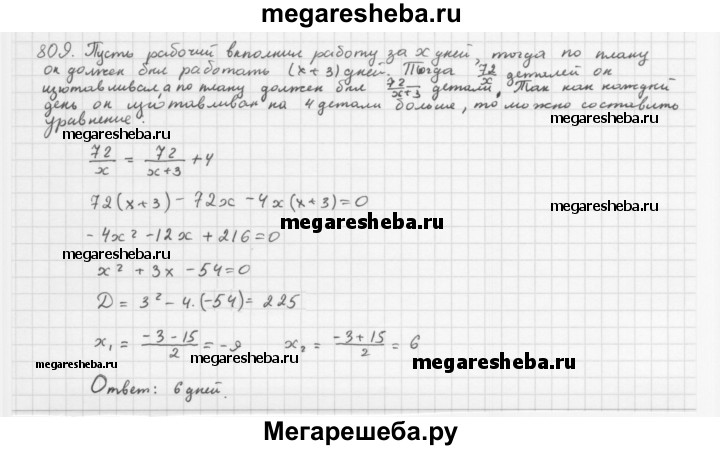 megaresheba.ru
809. Пусть рабочий выполнил работу за x дней, тогда по плану
он должен был работать (x+3) дней. Тогда 72/x деталей он
изготавливал, а по плану должен был 72/(x+3) детали. Так как каждый
день он изготавливал на 4 детали больше, то можно составить
уравнение:
megaresheba.ru
megaresheba.ru
72/x = 72/(x+3) + 4
megaresheba.ru
72(x+3) - 72x - 4x(x+3) = 0
megaresheba.ru
megaresheba.ru
-4x² - 12x + 216 = 0
megaresheba.ru
x² + 3x - 54 = 0
D = 3² - 4·(-54) = 225
megaresheba.ru
x₁ = (-3-15)/2 = -9 x₂ = (-3+15)/2 = 6
megaresheba.ru
megaresheba.ru
megaresheba.ru
Ответ: 6 дней.
Мегарешеба.ру